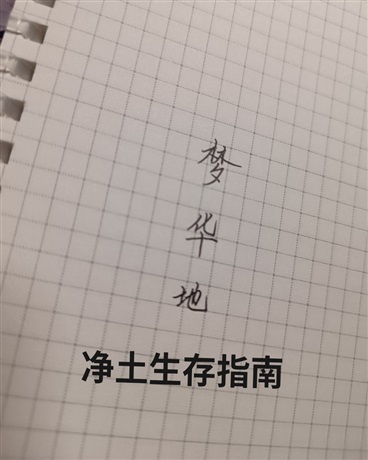 梦
华
地
净土生存指南